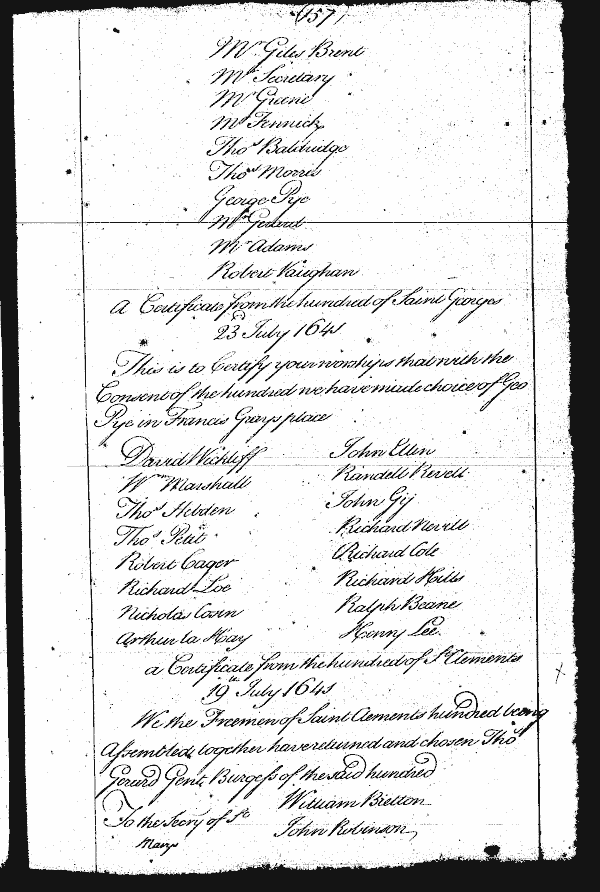 (157)
Mr. Giles Brent
Mr. Secretary
Mr. Greene
Mr. Fennick
Thos. Baldridge
Thos. Morris
George Pye
Mr. Gererd
Mr. Adams
Robert Vaughan
A Certificate from the hundred of Saint Georges
23 July 1641
This is to Certify your worships that with the
Consent of the hundred we have made choice of Geo
Pye in Francis Grays place
David Wickliff John Ellen
Wm. Marshall Randell Revell
Thos. Hebden John Gij
Thos. Petit Richard Nevill
Robert Cager Richard Cole
Richard Loe Richard Hills
Nicholas Cosen Ralph Beane
Arthur la Hay Henry Lee.
a Certificate from the hundred of St. Clements
19th July 1641
We the Freemen of Saint Clements hundred being
Assembled together have returned and chosen Thos.
Gerard Gent. Burgess of the said hundred
William Bretton
To the Secry of St.
John Robinson
Marys